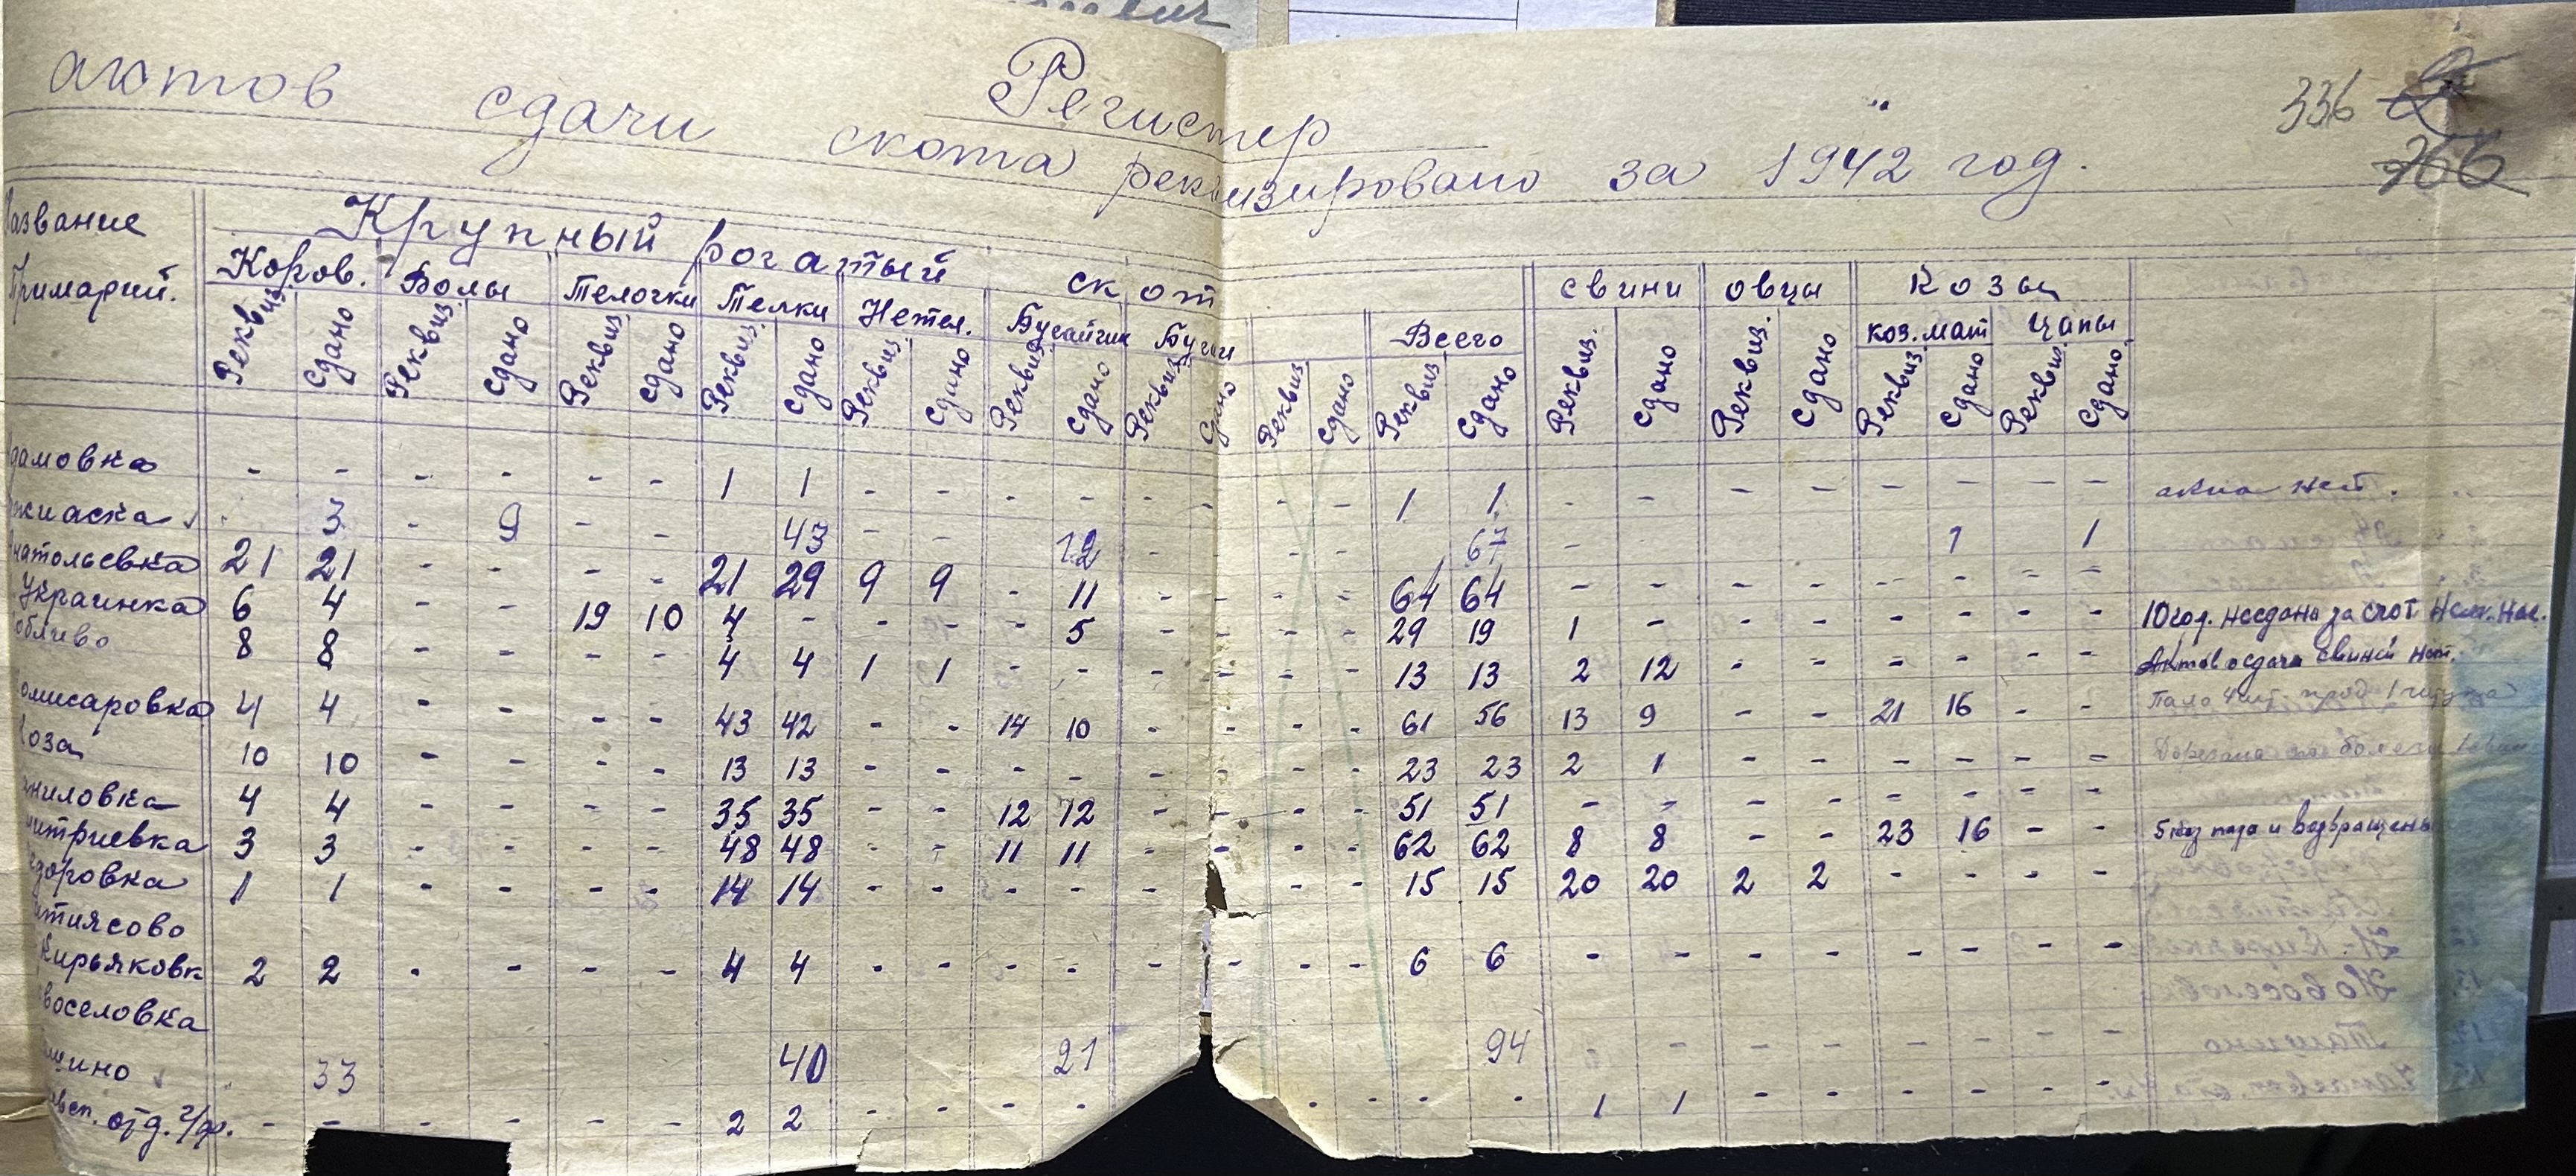 Регистер
актов сдачи скота реквизировано за 1942 год.
336
766
Название Примарий.
Крупный рогатый скот
Коров. Волы Телочки Телки Нетел. Бугайчик Бугаи Всего свини овцы Козы
коз.мат Цапы
Реквиз. Сдано Реквиз. Сдано Реквиз. Сдано Реквиз. Сдано Реквиз. Сдано Реквиз. Сдано Реквиз. Сдано Реквиз. Сдано Реквиз. Сдано Реквиз. Сдано Реквиз. Сдано Реквиз. Сдано Реквиз. Сдано
дамовка - - - - - - 1 1 - - - - - - - - 1 1 - - - - - - - - акта нет.
жиаска 3 - 9 - - 43 - - 12 - - - 67 - 1 1
натольевка 21 21 - - - - 21 29 9 9 - 11 - - - - 64 64 - - - - - - - -
Украинка 6 4 - - 19 10 4 - - - - 5 - - - - 29 19 1 - - - - - - - 10 гол. несдано за счот Нем. нас.
облево 8 8 - - - - 4 4 1 1 - - - - - - 13 13 2 12 - - - - - - Актов осдачи свиней нет.
омисаровка 4 4 - - - - 43 42 - - 14 10 - - - - 61 56 13 9 - - 21 16 - - Пало 4 шт.
оза 10 10 - - - - 13 13 - - - - - - - - 23 23 2 1 - - - - - - Дорезана
ниловка 4 4 - - - - 35 35 - - 12 12 - - - - 51 51 - - - - - - - -
митриевка 3 3 - - - - 48 48 - - 11 11 - - - - 62 62 8 8 - - 23 16 - - 5 коз пало и возвращены
едоровка 1 1 - - - - 14 14 - - - - - - - 15 15 20 20 2 2 - - - -
тиясово
Кирьяковк 2 2 - - - - 4 4 - - - - - - - - 6 6 - - - - - - - -
восeловка
щино 33 40 21 94 - - - - - - -
отд. г/р. - - - - - - 2 2 - - - - - - - 1 1 - - - - - -